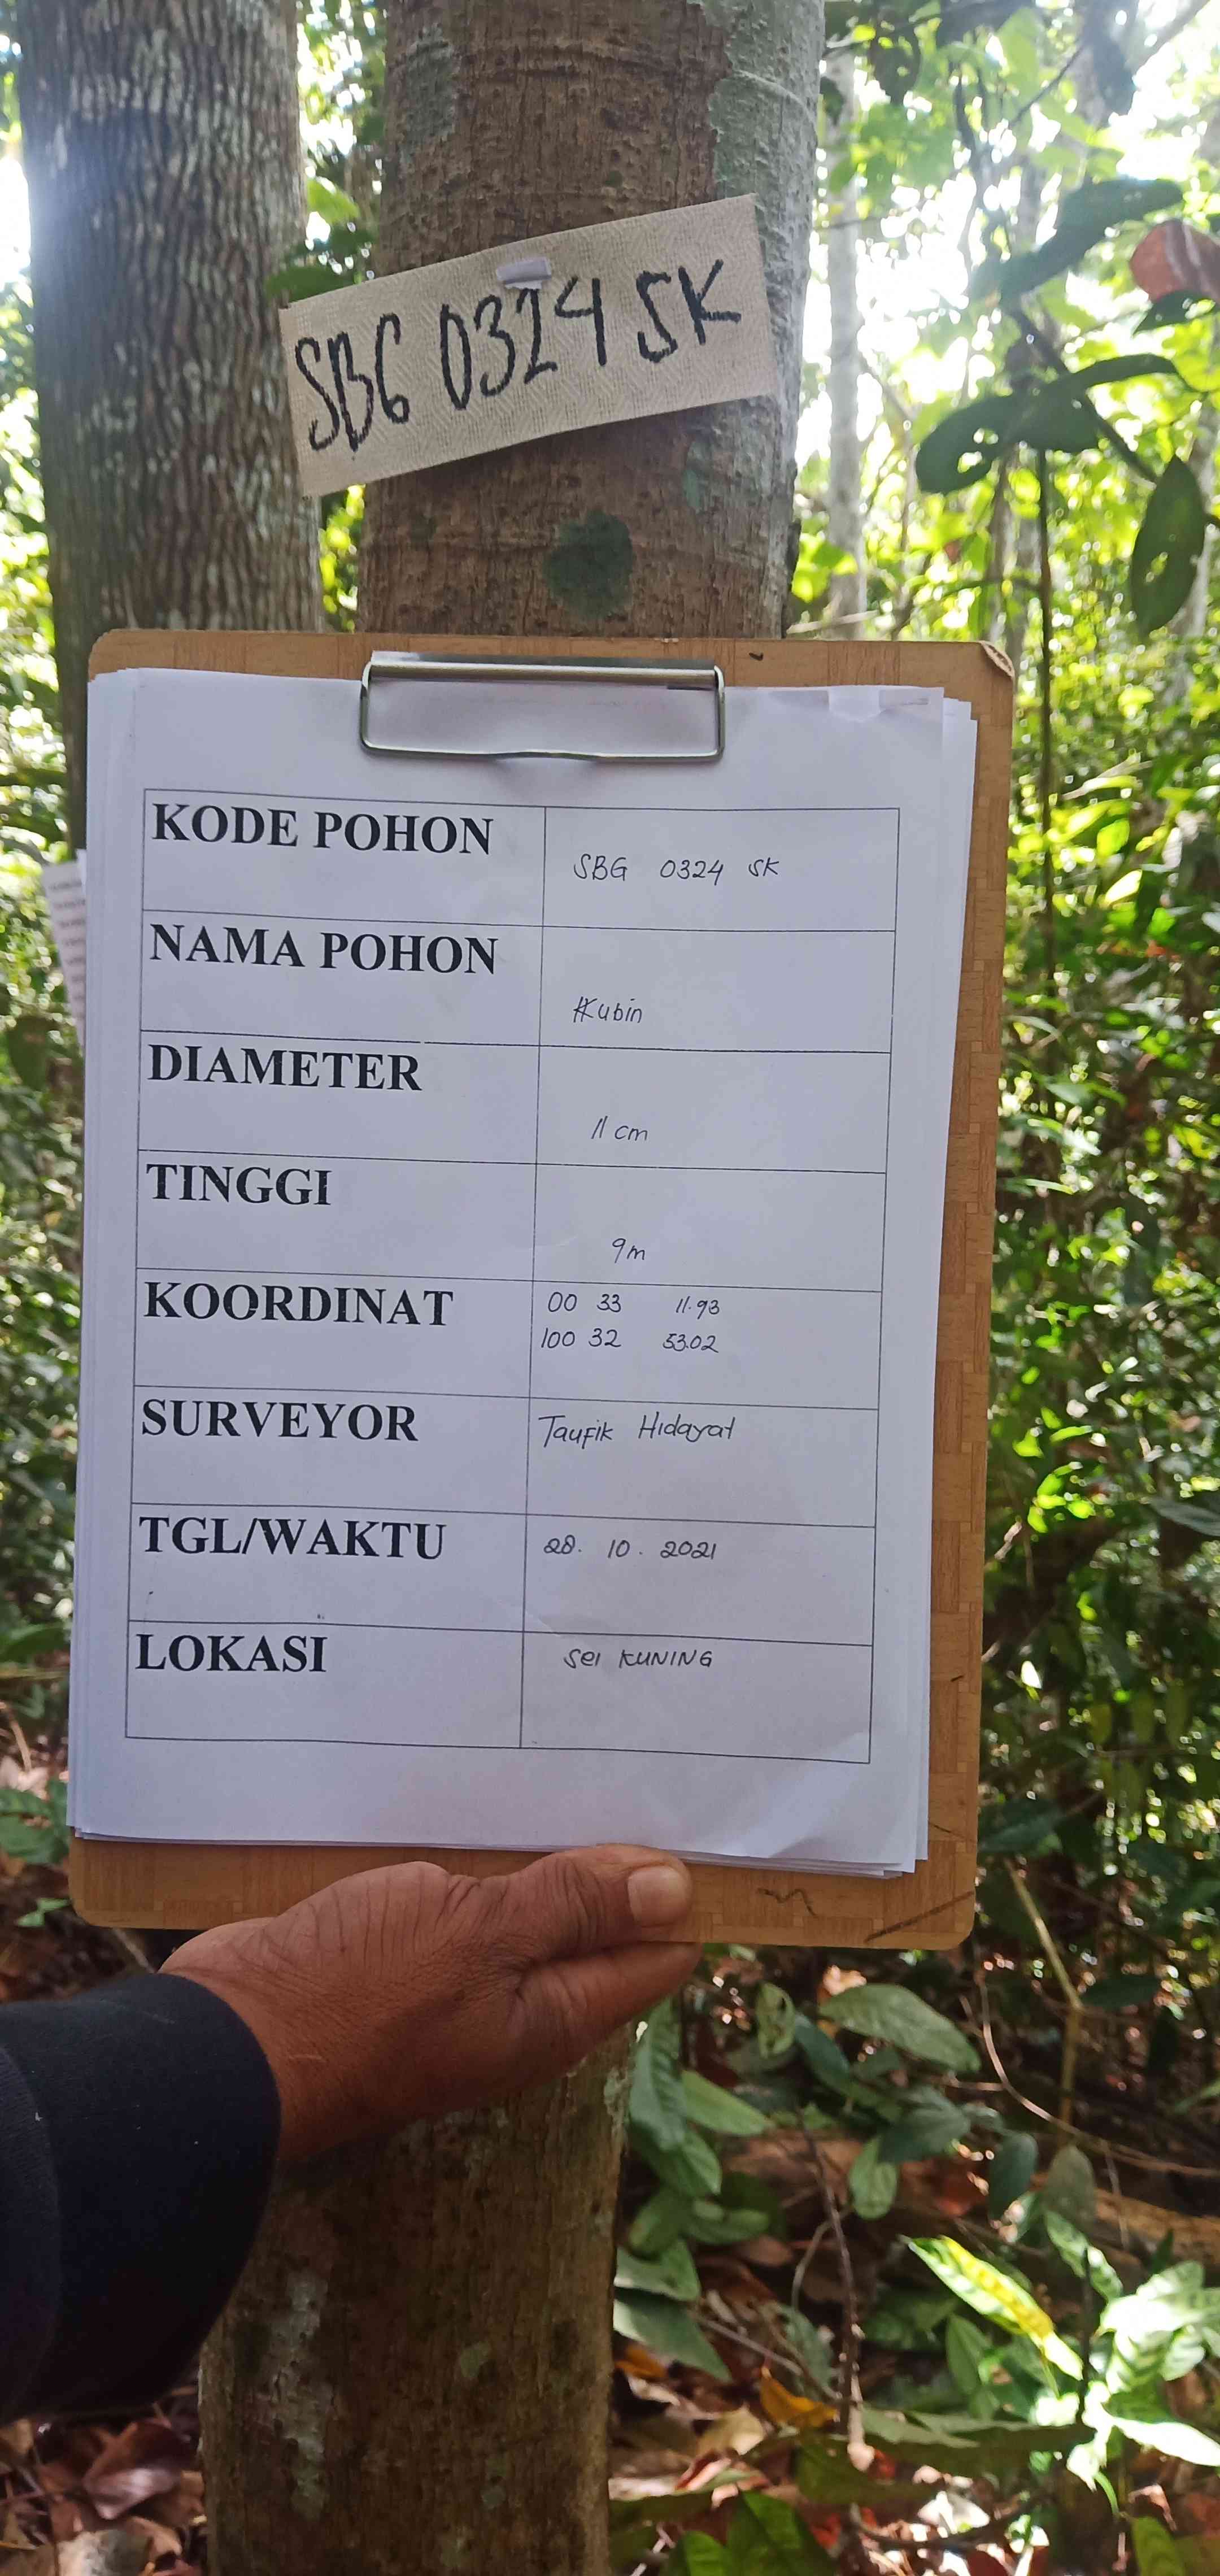 SBG 0324 SK
KODE POHON SBG 0324 SK
NAMA POHON Kubin
DIAMETER 11 cm
TINGGI 9m
KOORDINAT 00 33 11.93
100 32 53.02
SURVEYOR Taufik Hidayat
TGL/WAKTU 28. 10. 2021
LOKASI Sei KUNING